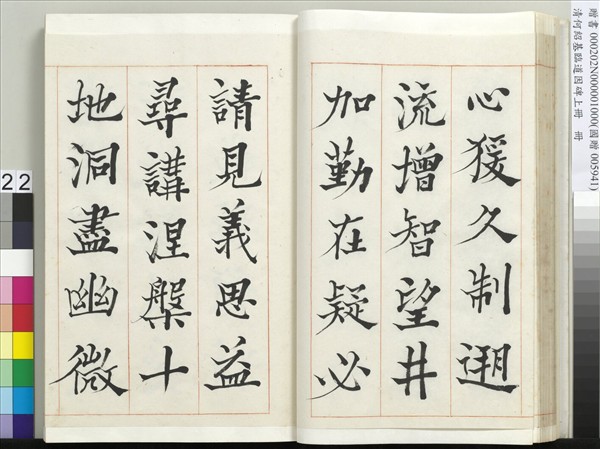 贈書 000202N000001000(國贈 005941)
清何紹基臨道因碑上冊 冊
心猨久制遡
流增智望井
加勤在疑必
請見義思益
尋講涅槃十
地洞盡幽微
22